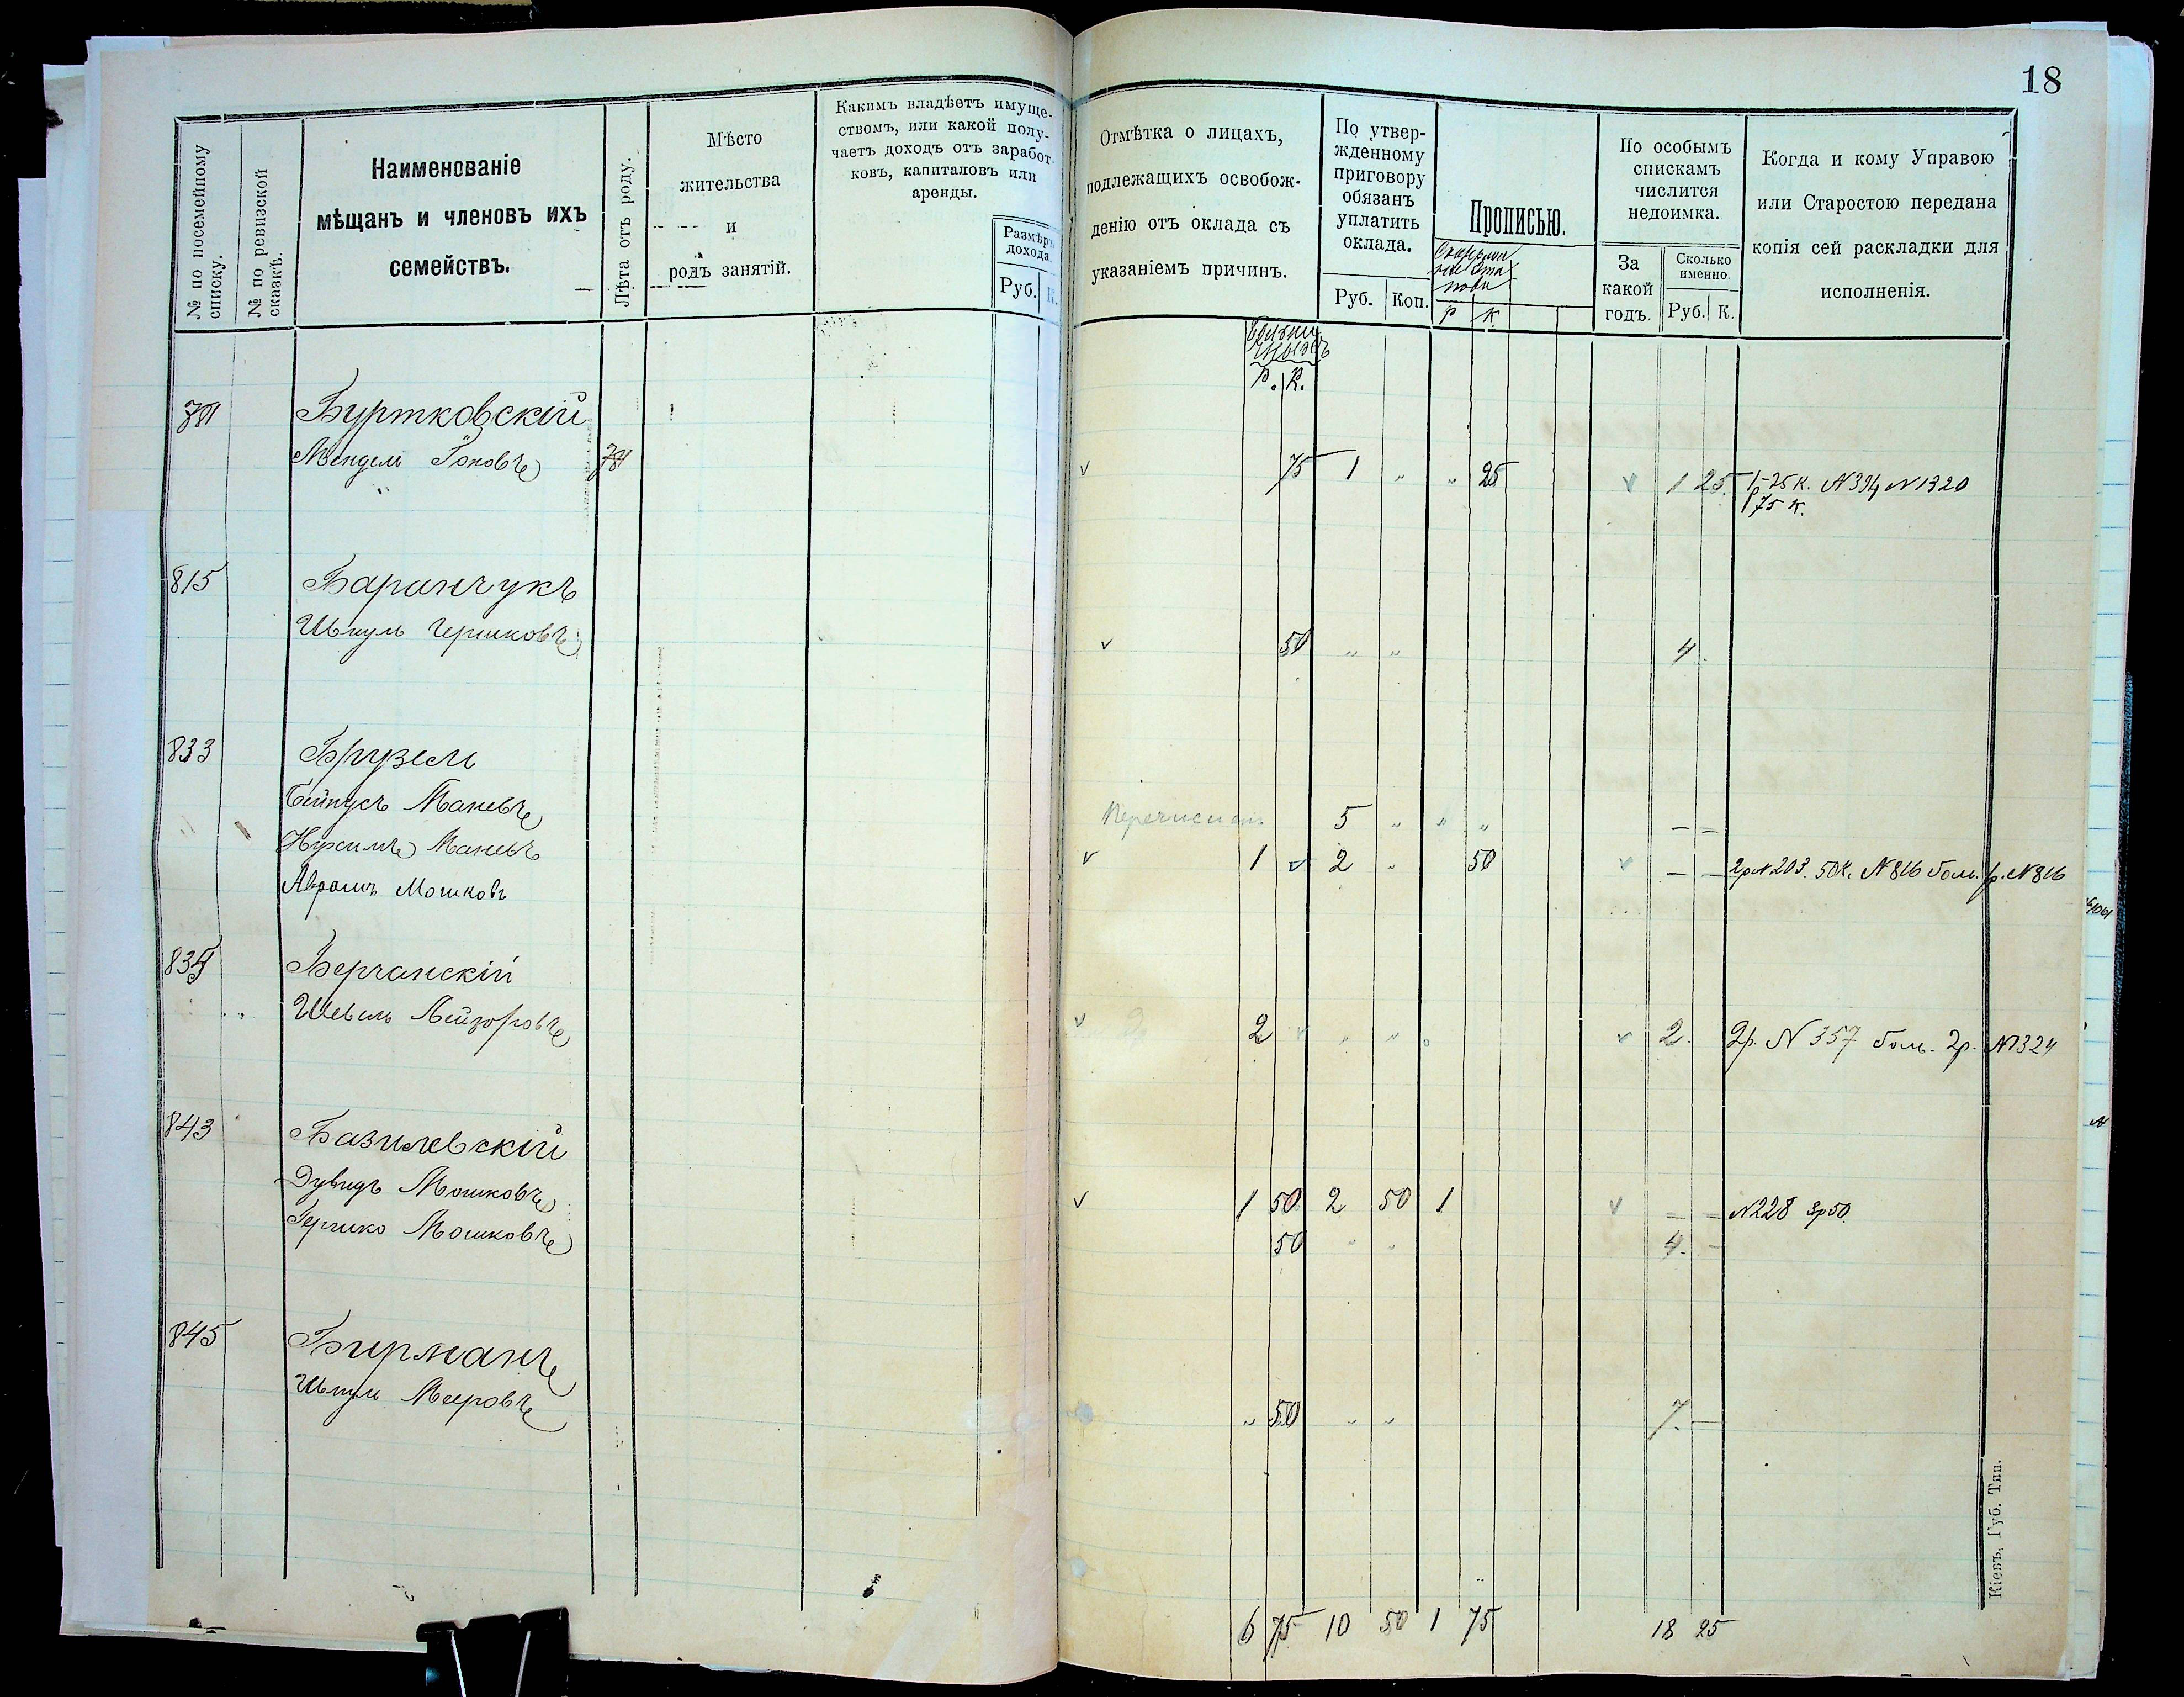 18
№ по посемейному списку.
№ по ревизской сказкѣ.
Наименованіе
мѣщанъ и членовъ ихъ
семействъ.
Лѣта отъ роду.
Мѣсто
жительства
и
родъ занятій.
Какимъ владѣетъ имуще-
ствомъ, или какой полу-
чаетъ доходъ отъ заработ-
ковъ, капиталовъ или
аренды.
Размѣръ
дохода.
Руб. К.
Отмѣтка о лицахъ,
подлежащихъ освобож-
денію отъ оклада съ
указаніемъ причинъ.
По утвер-
жденному
приговору
обязанъ
уплатить
оклада.
Руб. Коп.
Прописью.
Р К
По особымъ
спискамъ
числится
недоимка.
За
какой
годъ.
Сколько
именно.
Руб. К.
Когда и кому Управою
или Старостою передана
копія сей раскладки для
исполненія.
Р. К.
Буртковскій
Мендель
75 1 " " 25 1 25 1-25 к. N 394 N 1320
75 к.
815 Баранчукъ
Шмуль Гершковъ
50 " " 4
833 Брузель
Перечислен 5 " " "
Маневъ 1 2 " 50 — — 2р N 203. 50к. N 816 боль. 1р. N 816
Аврамъ Мошковъ
Берчанскій
Шевель Лейзоровъ 2 " " 2. 2р. N 357 боль. 2р. N 1324
843 Базилевскій
Дувидъ Мошковъ 1 50 2 50 1 — — N 228 3р50.
Гершко Мошковъ 50 " " 4. —
845 Бирманъ
Шмуль Мееровъ " 50 " " 7. —
6 75 10 50 1 75 18 25
Кіевъ, Губ. Тип.